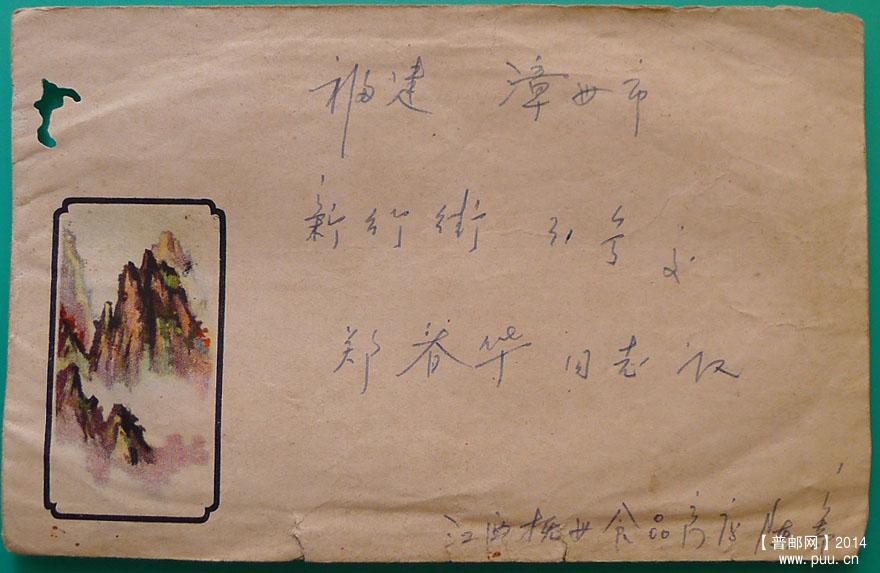 福建 漳州市
新行街 31号 交
郑春华 同志 收
江西抚州食品商店
【普邮网】2014
www.puu.cn